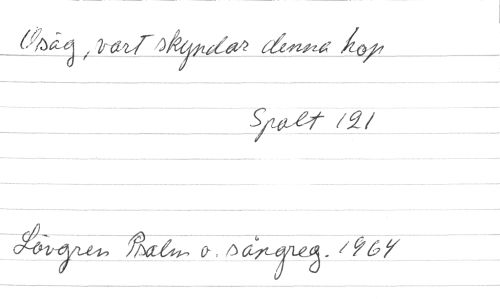 O säg, vart skyndar denna hop
Spalt 121
Lövgren Psalm o. sångreg. 1964